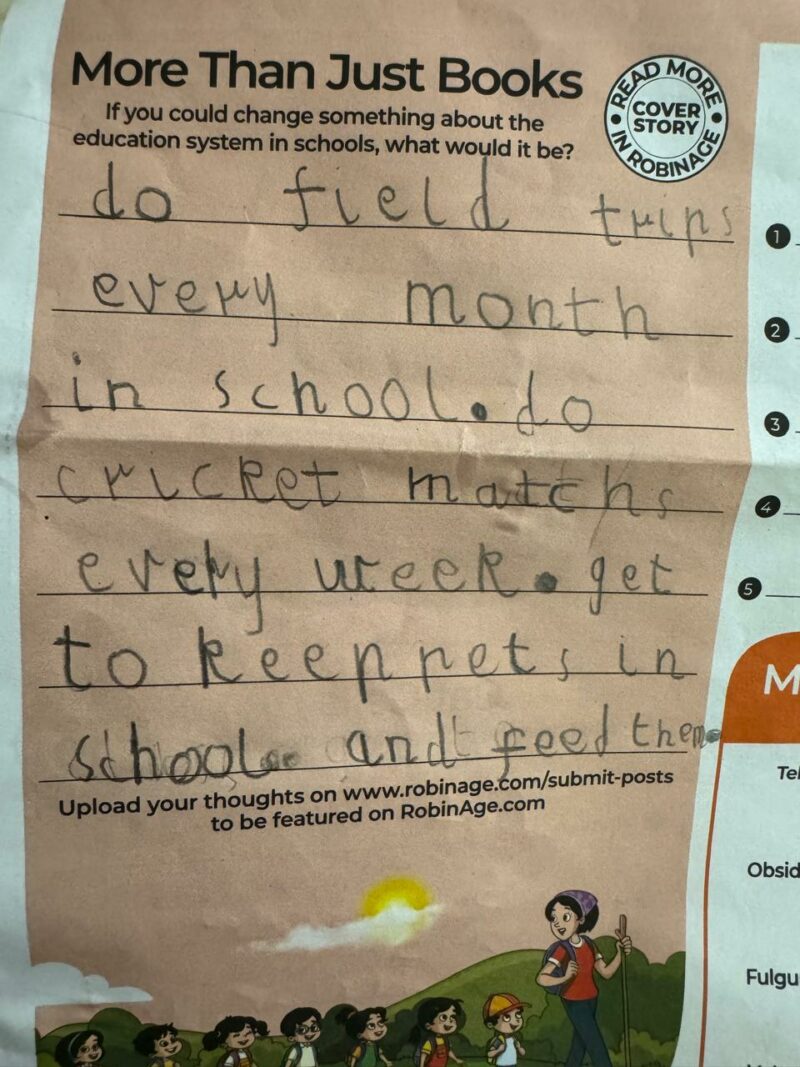 More Than Just Books
If you could change something about the
education system in schools, what would it be?
READ MORE
COVER
STORY
IN ROBINAGE
do field trips
every month
in school. do
cricket matchs
every week. get
to keep pets in
school. and feed them.
Upload your thoughts on www.robinage.com/submit-posts
to be featured on RobinAge.com
1
2
3
4
5
M
Tel
Obsid
Fulgu